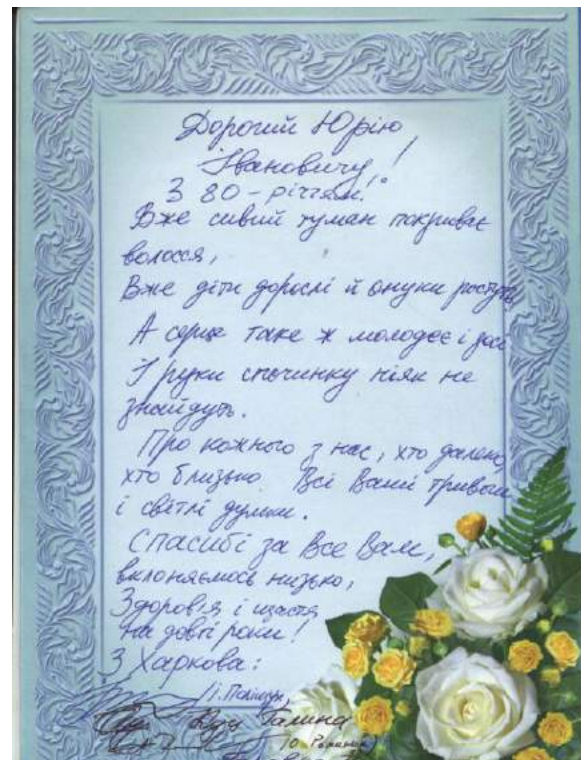 Дорогий Юрію
Івановичу!
З 80-річчям!
Вже сивий туман покриває
волосся,
Вже діти дорослі й онуки ростуть
А серце таке ж молодеє і досі
І руки спочинку ніяк не
знайдуть.
Про кожного з нас, хто далеко,
хто близько Всі Ваші тривоги
і світлі думки.
Спасибі за Все Вам,
вклоняємось низько,
Здоров'я і щастя
на довгі роки!
З Харкова:
Галина